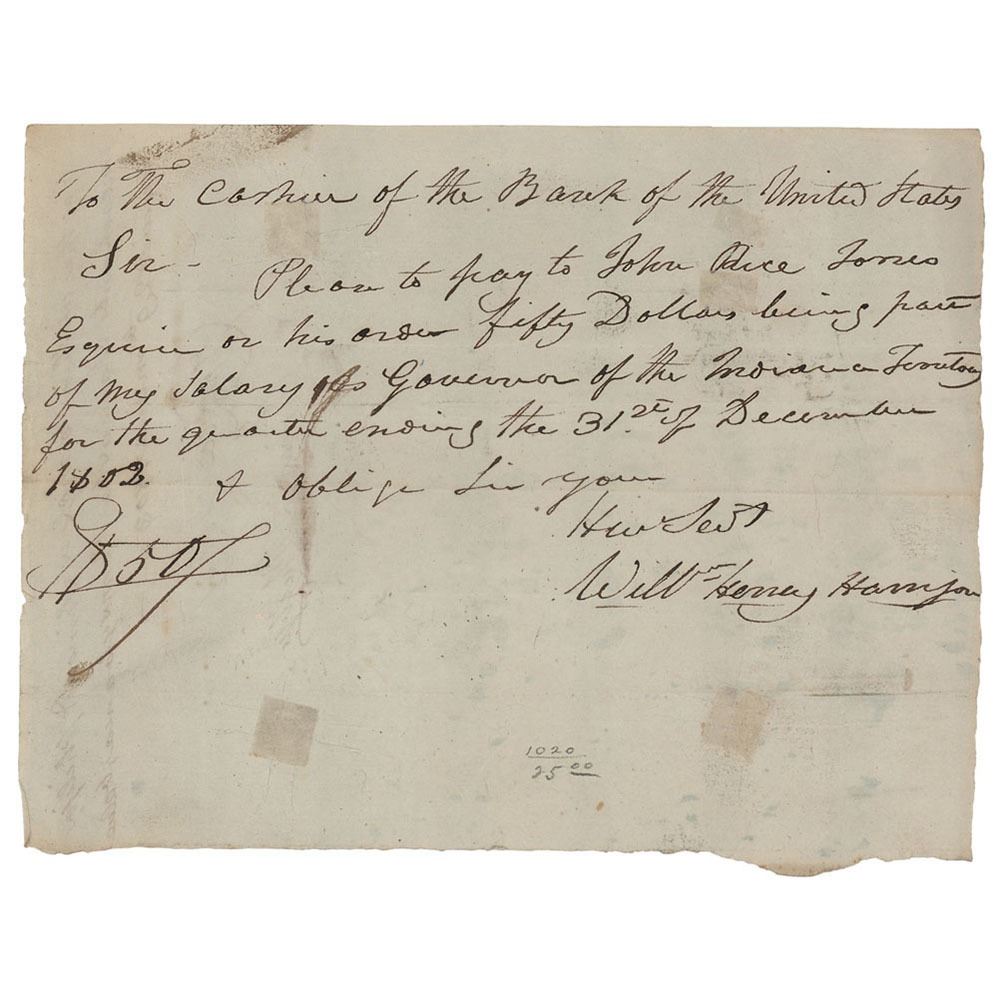 To The Cashier of the Bank of the United States
Sir - Please to pay to John Rice Jones
Esquire or his order fifty Dollars being part
of my Salary as Governor of the Indiana Territory
for the quarter ending the 31st of December
1802. & oblige Sir your
Hue Servt
$50/
Willm Henry Harrison
1020
25 00